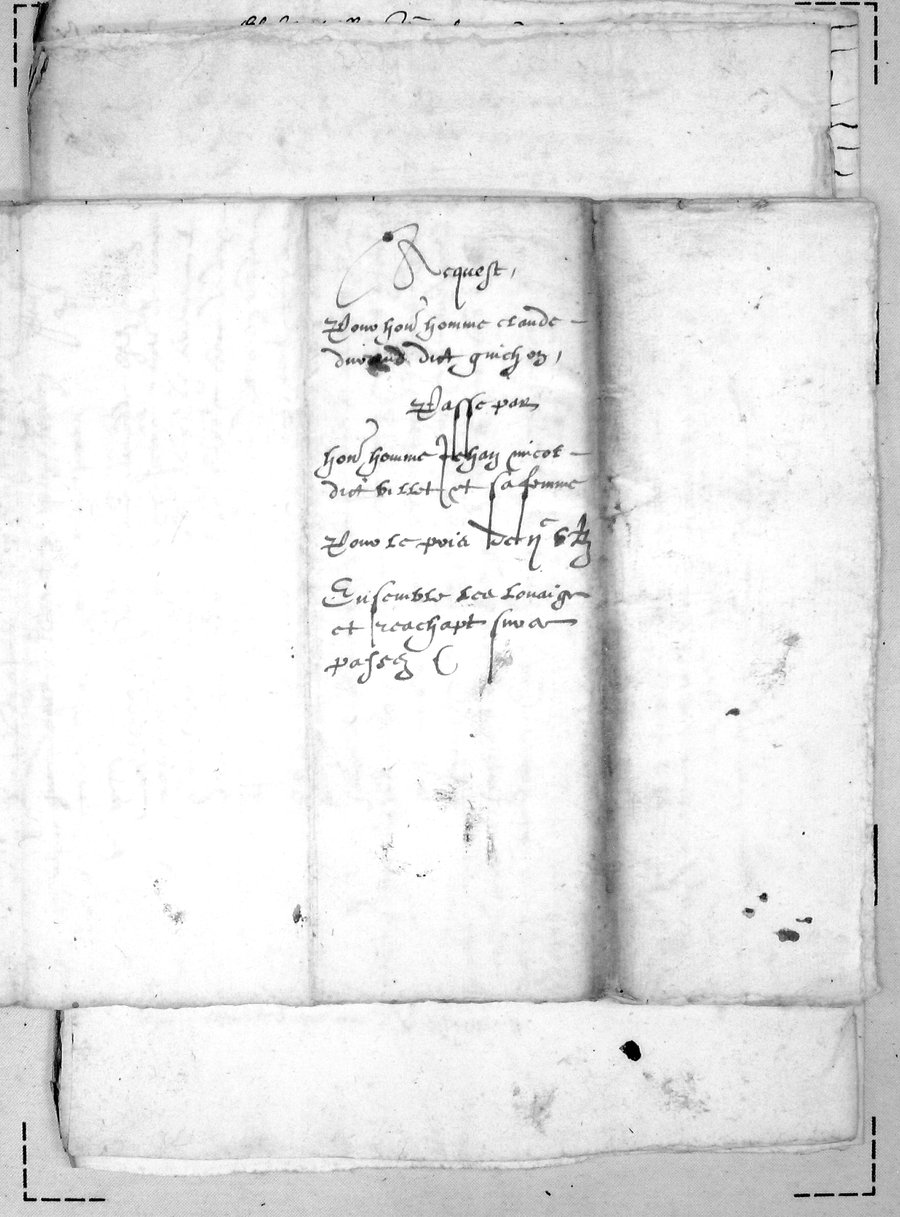 Acquest,
Pour hon homme claude
durand dict guichon,
Passe par
hon homme Jehan nicol
dict villet et sa femme
Pour le pris de ij c v
Ensemble les louaige
et reachapt sur ce
passez